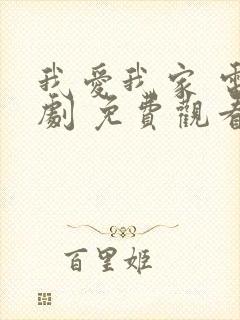 我愛我家 電
劇 免費觀看
百里姬